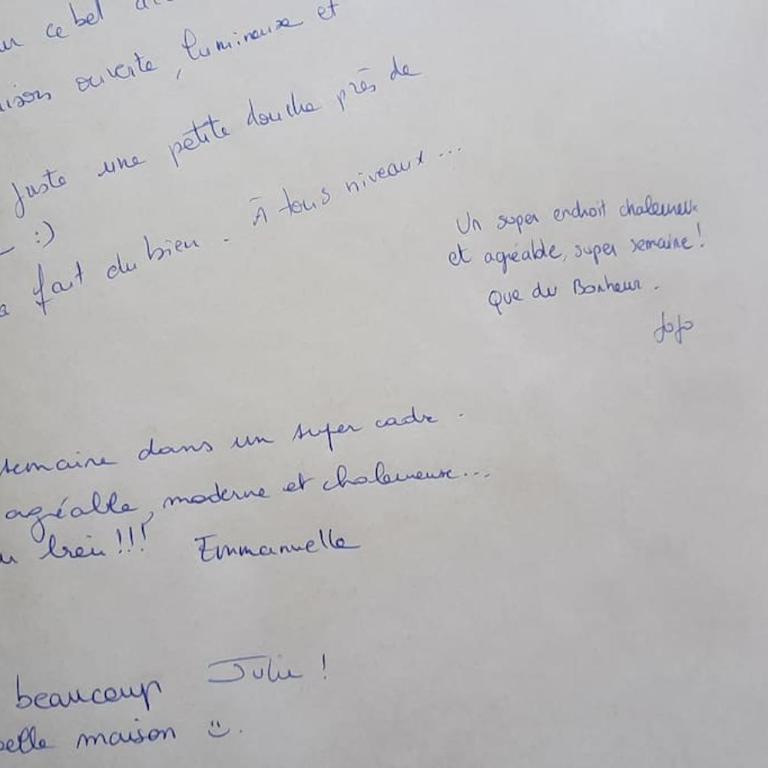 ce bel
ouverte, lumineuse et
Juste une petite douche près de
:)
fait du bien. À tous niveaux...
Un super endroit chaleureux
et agréable, super semaine!
Que du Bonheur.
JoJo
semaine dans un super cadre.
agréable, moderne et chaleureuse...
bien!!! Emmanuelle
beaucoup Julie!
belle maison ☺.